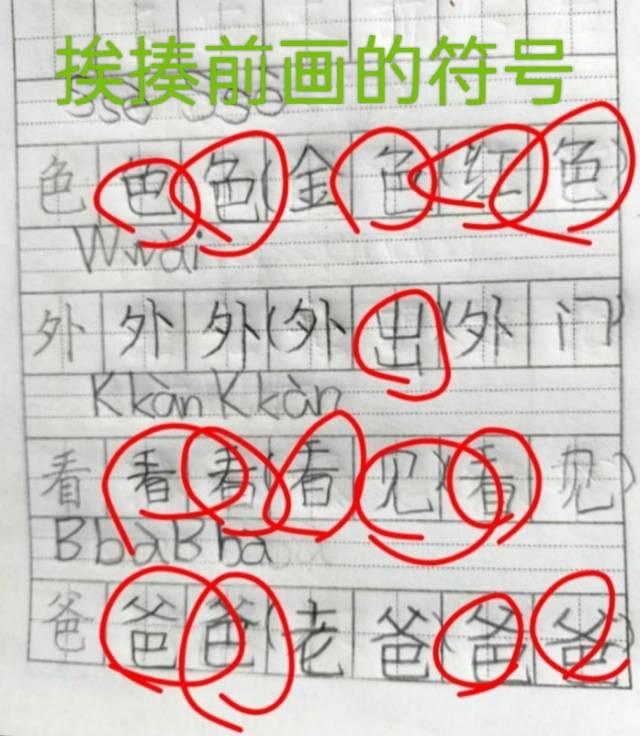 挨揍前画的符号
色色色(金色)(红色)
Wwài
外外外(外出)(外门)
Kkàn Kkàn
看看看(看见)(看见)
BbàBbà
爸爸爸(老爸)(爸爸)